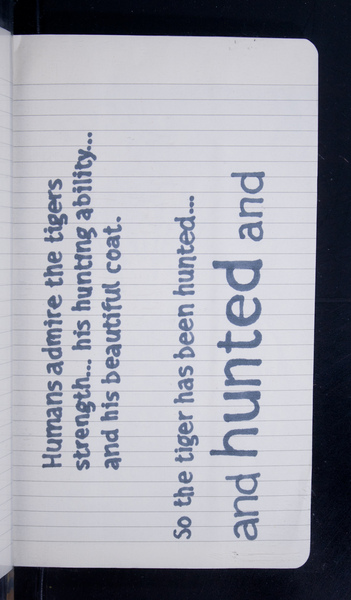 Humans admire the tigers
strength... his hunting ability...
and his beautiful coat.
So the tiger has been hunted...
and hunted and